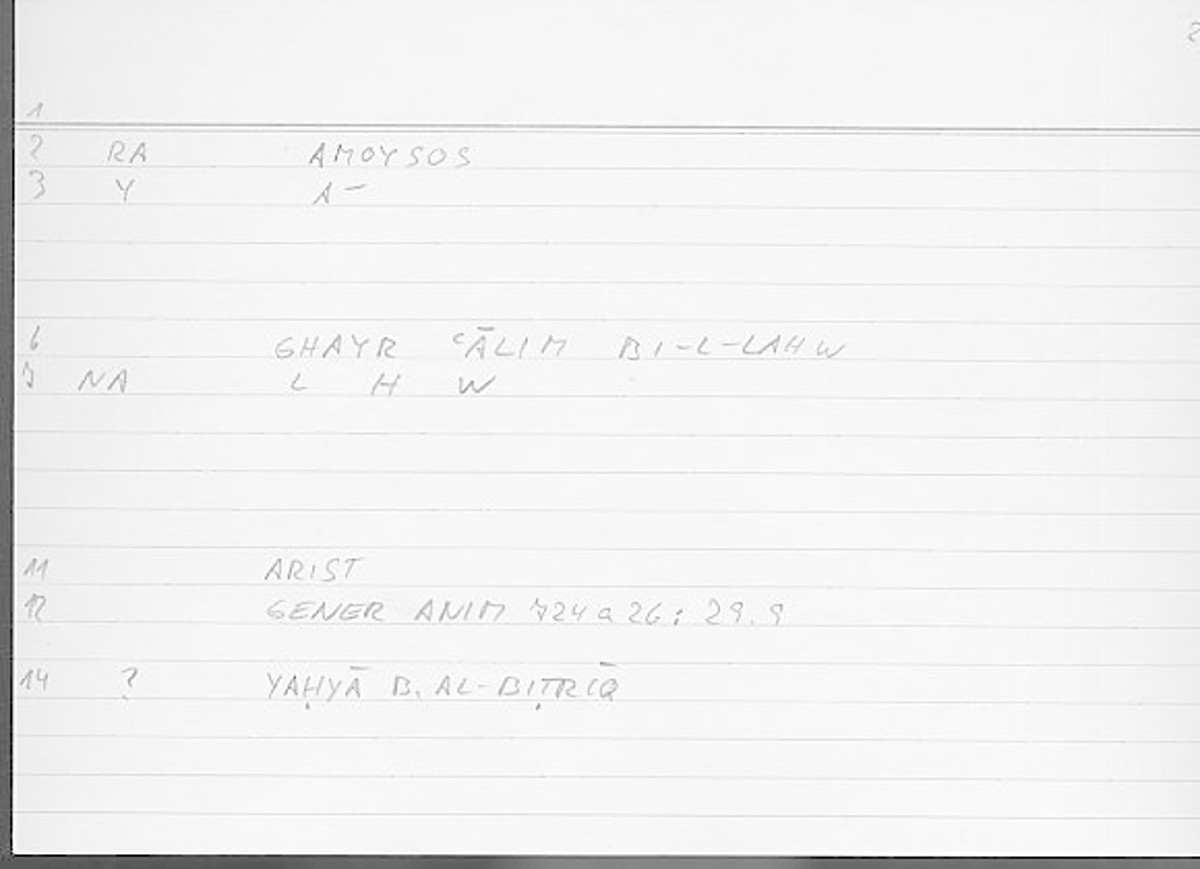 2
1
2 RA AMOYSOS
3 Y A-
6 GHAYR ʿĀLIM BI-L-LAHW
7 NA L H W
11 ARIST
12 GENER ANIM 724 a 26 : 29.9
14 ? YAḤYĀ B. AL-BIṬRĪQ